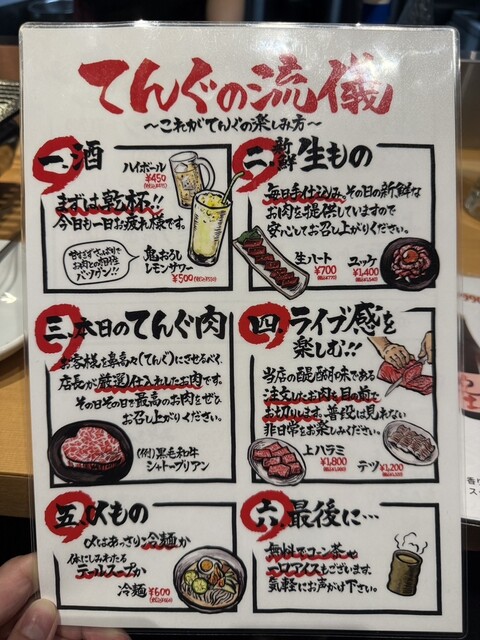 てんぐの流儀
〜これがてんぐの楽しみ方〜
一、酒
ハイボール
¥450
まずは乾杯!!
今日も一日お疲れ様です。
甘すぎずさっぱりで
お肉との相性
バツグン!!
鬼おろし
レモンサワー
¥500
二、新鮮生もの
毎日手仕込み、その日の新鮮な
お肉を提供していますので
安心してお召し上がりください。
生ハート
¥700
ユッケ
¥1,400
三、本日のてんぐ肉
お客様を鼻高々(てんぐ)にさせるべく、
店長が厳選し仕入れしたお肉です。
その日その日で最高のお肉をぜひ
お召し上がりください。
(例)黒毛和牛
シャトーブリアン
四、ライブ感を
楽しむ!!
当店の醍醐味である
注文したお肉を目の前で
お切りします。普段は見れない
非日常をお楽しみください。
上ハラミ
¥1,800
テツ ¥1,200
五、〆もの
〆はあっさり冷麺か
体にしみわたる
テールスープか
冷麺 ¥600
六、最後に…
無料でコーン茶や
一口アイスもございます。
気軽にお声がけ下さい。